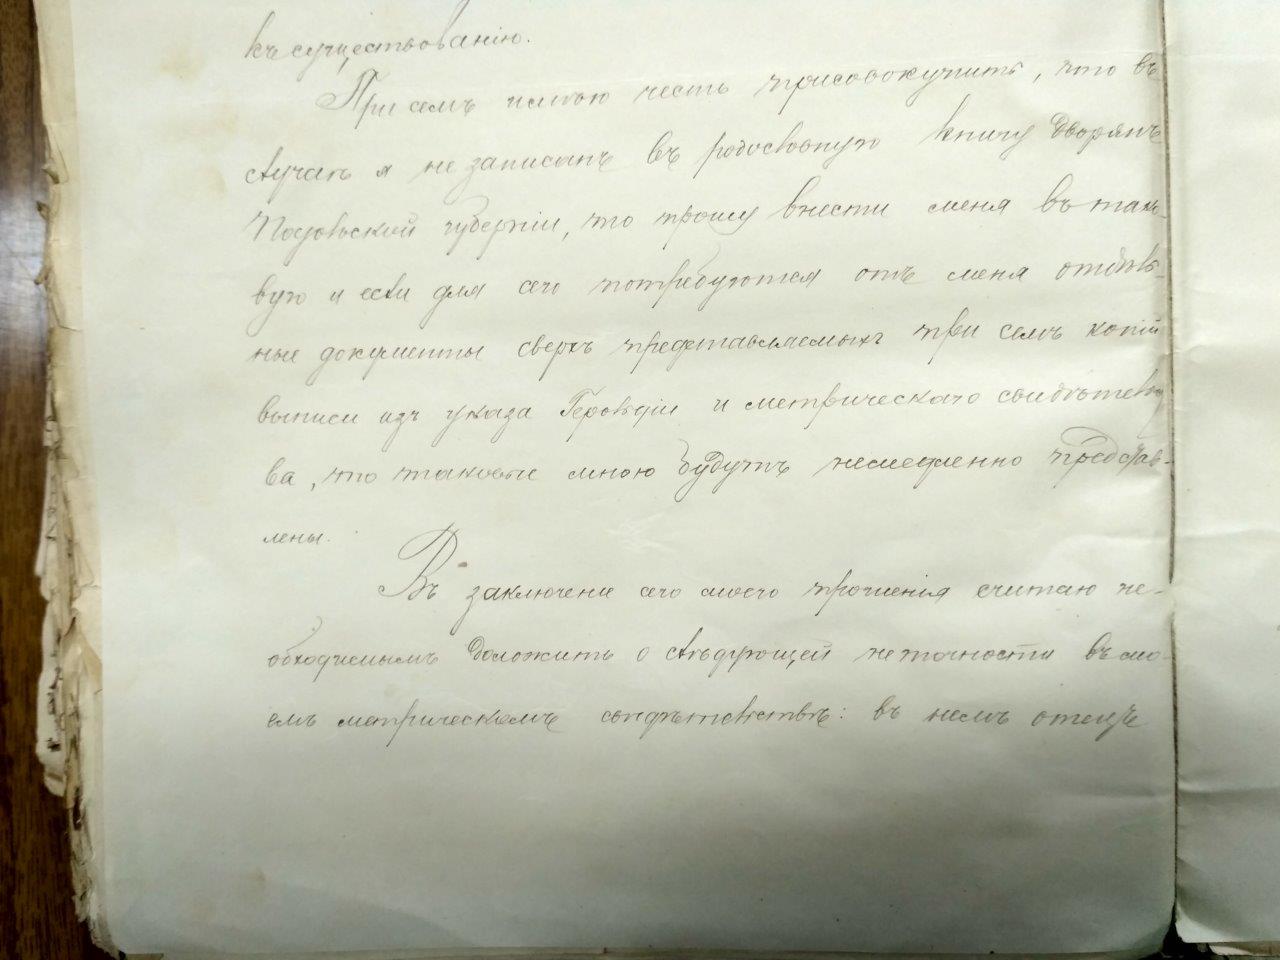 къ существованію.
При семъ имѣю честь присовокупить, что въ
случаѣ я не записанъ въ родословную книгу Дворянъ
губерніи, то прошу внести меня въ тако-
вую и если для сего потребуются отъ меня отдѣль-
ные документы сверхъ представляемыхъ при семъ копій
выписи изъ указа Герольдіи и метрическаго свидѣтельст
ва, то таковые мною будутъ немедленно представ-
лены.
Въ заключеніе сего моего прошенія считаю не-
обходимымъ доложить о слѣдующей неточности въ мо-
емъ метрическомъ свидѣтельствѣ: въ немъ отецъ